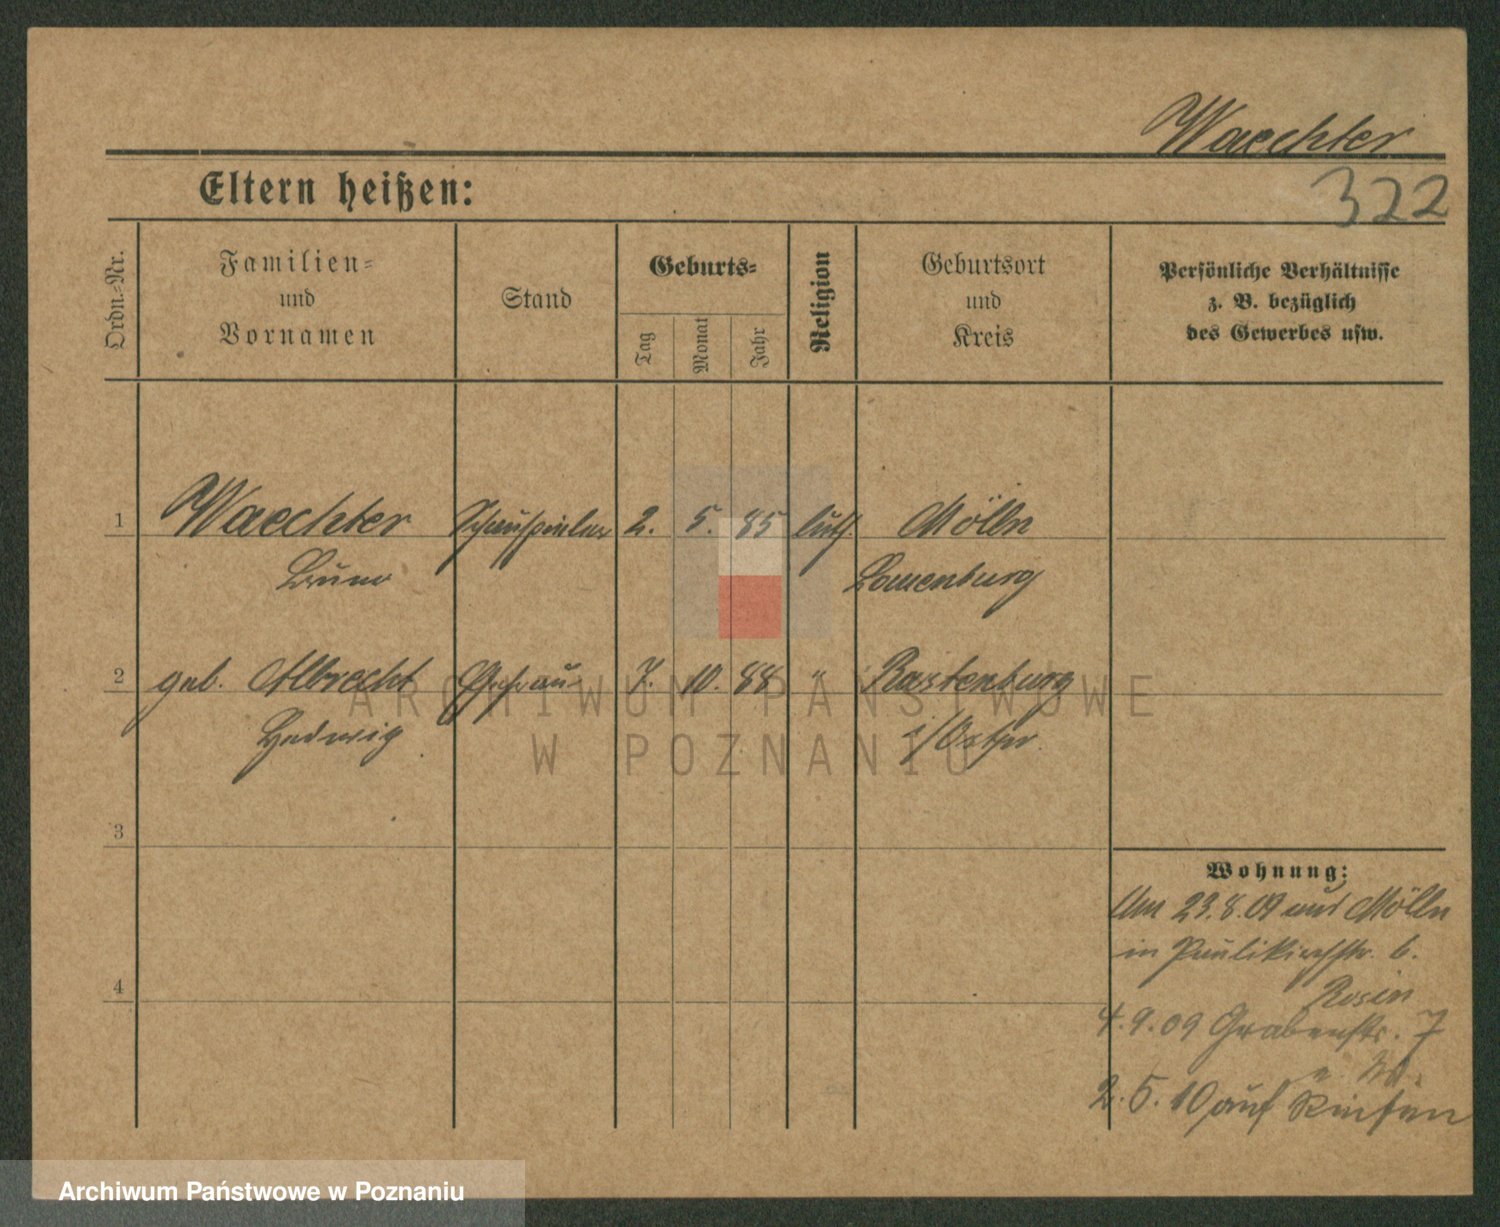 Waechter
322
Eltern heißen:
Ordn.-Nr.
Familien-
und
Vornamen
Stand
Geburts-
Tag
Monat
Jahr
Religion
Geburtsort
und
Kreis
Persönliche Verhältnisse
z. B. bezüglich
des Gewerbes usw.
1 Waechter Schauspieler 2. 5. 85 luth. Mölln
Bruno Lauenburg
2 geb. Albrecht Ehefrau 7. 10. 88 " Rastenburg
Hedwig i/Ostpr.
3
4
Wohnung:
Am 23.8.09 aus Mölln
in Paulikirchstr. 6.
Rosin
4.9.09 Grabenstr. 7
2.5.10 auf Reisen
ARCHIWUM PAŃSTWOWE
W POZNANIU
Archiwum Państwowe w Poznaniu